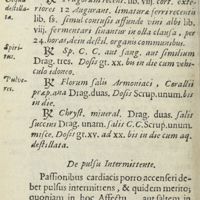 destilla-
ta.
℞. Fragorum recent. lib. viij. cort. exte-
riores 12 Aurant. limaturæ ferri recentis
lib. ss. simul contusis affunde vini albi lib.
viij. fermentari sinantur in olla clausa, per
24. horas, dein destil. organis communibus.
Spiri-
tus.
℞. Sp. C. C. aut sang. aut simulium
Drag. tres. Dosis gt. xx. bis in die cum vehi-
culo idoneo.
Pulve-
res.
℞. Florum salis Armoniaci, Corallii
præp. ana Drag. duas, Dosis Scrup. unum. bis
in die.
℞. Chryst. mineral. Drag. duas. salis
succini Drag. unam. salis C. C. Scrup. unum.
misce. Dosis gt. xv. ad xx. bis in die cum aq.
destillata.
De pulsu Intermittente.
Passionibus cardiacis porro accenseri de-
bet pulsus intermittens, & quidem merito;
quoniam in hoc Affectu, aut saltem in